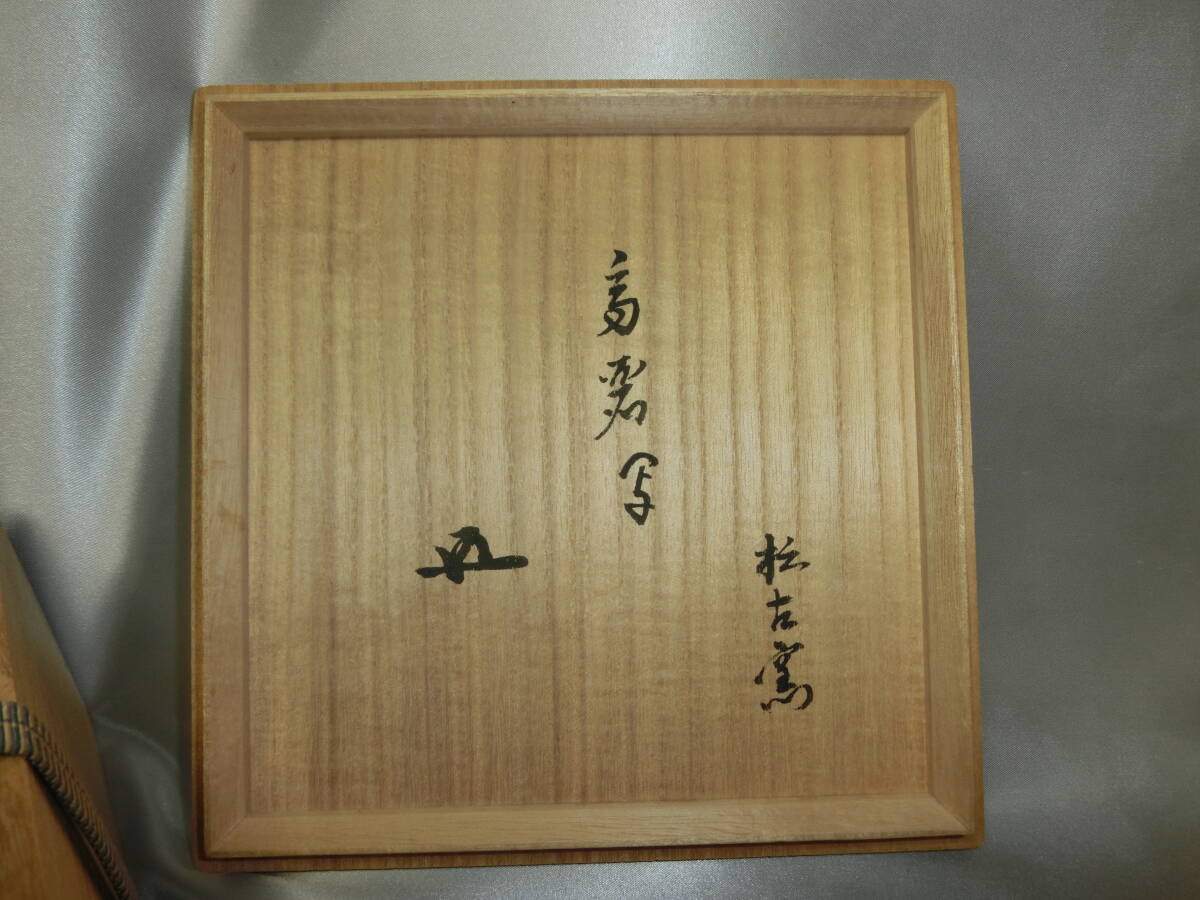 松古窯
高麗写